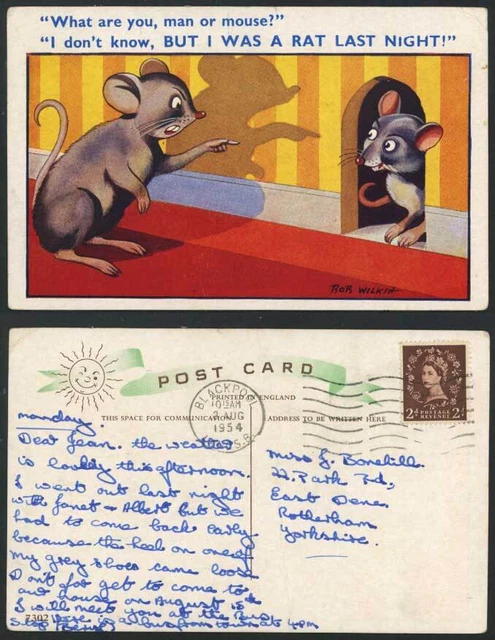 "What are you, man or mouse?"
"I don't know, BUT I WAS A RAT LAST NIGHT!"
POST CARD
PRINTED IN ENGLAND
THIS SPACE FOR COMMUNICATION
ADDRESS TO BE WRITTEN HERE
BLACKPOOL
AUG
1954
2D POSTAGE REVENUE 2D
monday.
Dear Jean. the weather
is lovely this afternoon.
I went out last night
with Janet + Albert but we
had to come back early
because the heel on one of
my grey shoes came loose
Don't for get to come to
our house on August
I will meet you at the Bus
Stop. There is a bus from town at 4pm
7302
Miss J.
Park Rd,
East Dene.
Rotherham.
Yorkshire.